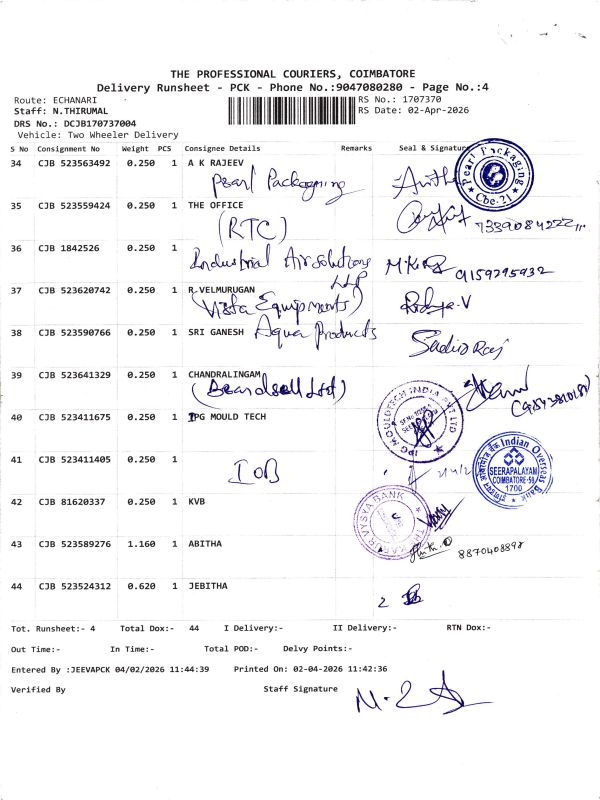 THE PROFESSIONAL COURIERS, COIMBATORE
Delivery Runsheet - PCK - Phone No.:9047080280 - Page No.:4
Route: ECHANARI
Staff: N.THIRUMAL
RS No.: 1707370
RS Date: 02-Apr-2026
DRS No.: DCJB170737004
Vehicle: Two Wheeler Delivery
S No Consignment No Weight PCS Consignee Details Remarks Seal & Signature
34 CJB 523563492 0.250 1 A K RAJEEV
Pearl Packaging
Pearl Packaging Cbe-21
35 CJB 523559424 0.250 1 THE OFFICE
(RTC)
36 CJB 1842526 0.250 1
Industrial Airsolutions LLP
9159295932
37 CJB 523620742 0.250 1 R.VELMURUGAN
(Vista Equipments)
38 CJB 523590766 0.250 1 SRI GANESH Aqua Products
39 CJB 523641329 0.250 1 CHANDRALINGAM
(Beardsell Ltd)
40 CJB 523411675 0.250 1 IPG MOULD TECH
IPG MOULDTECH INDIA PVT LTD
41 CJB 523411405 0.250 1
IOB
Indian Overseas Bank
SEERAPALAYAM
COIMBATORE-
1700
42 CJB 81620337 0.250 1 KVB
VYSYA BANK
43 CJB 523589276 1.160 1 ABITHA
8870408898
44 CJB 523524312 0.620 1 JEBITHA
Tot. Runsheet:- 4 Total Dox:- 44 I Delivery:- II Delivery:- RTN Dox:-
Out Time:- In Time:- Total POD:- Delvy Points:-
Entered By :JEEVAPCK 04/02/2026 11:44:39 Printed On: 02-04-2026 11:42:36
Verified By Staff Signature